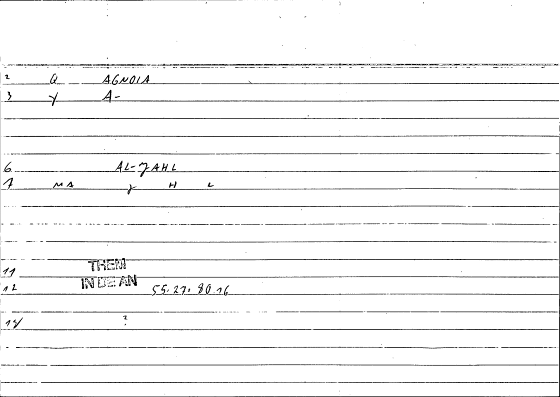 2 Q AGNOIA
3 Y A-
6 AL-JAHL
7 MA Y H L
11 THEM
12 IN DE AN 55.27.80.16
14 ?